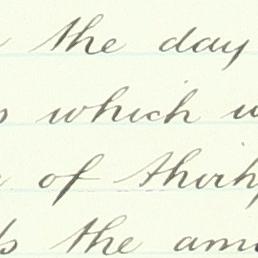 the day
which
of thirty
the am